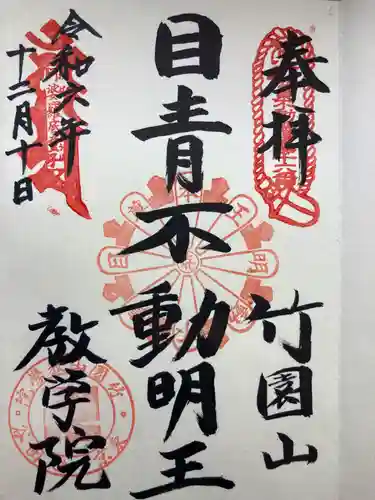 奉拝
竹園山
目青不動明王
令和六年
十二月十日
教学院